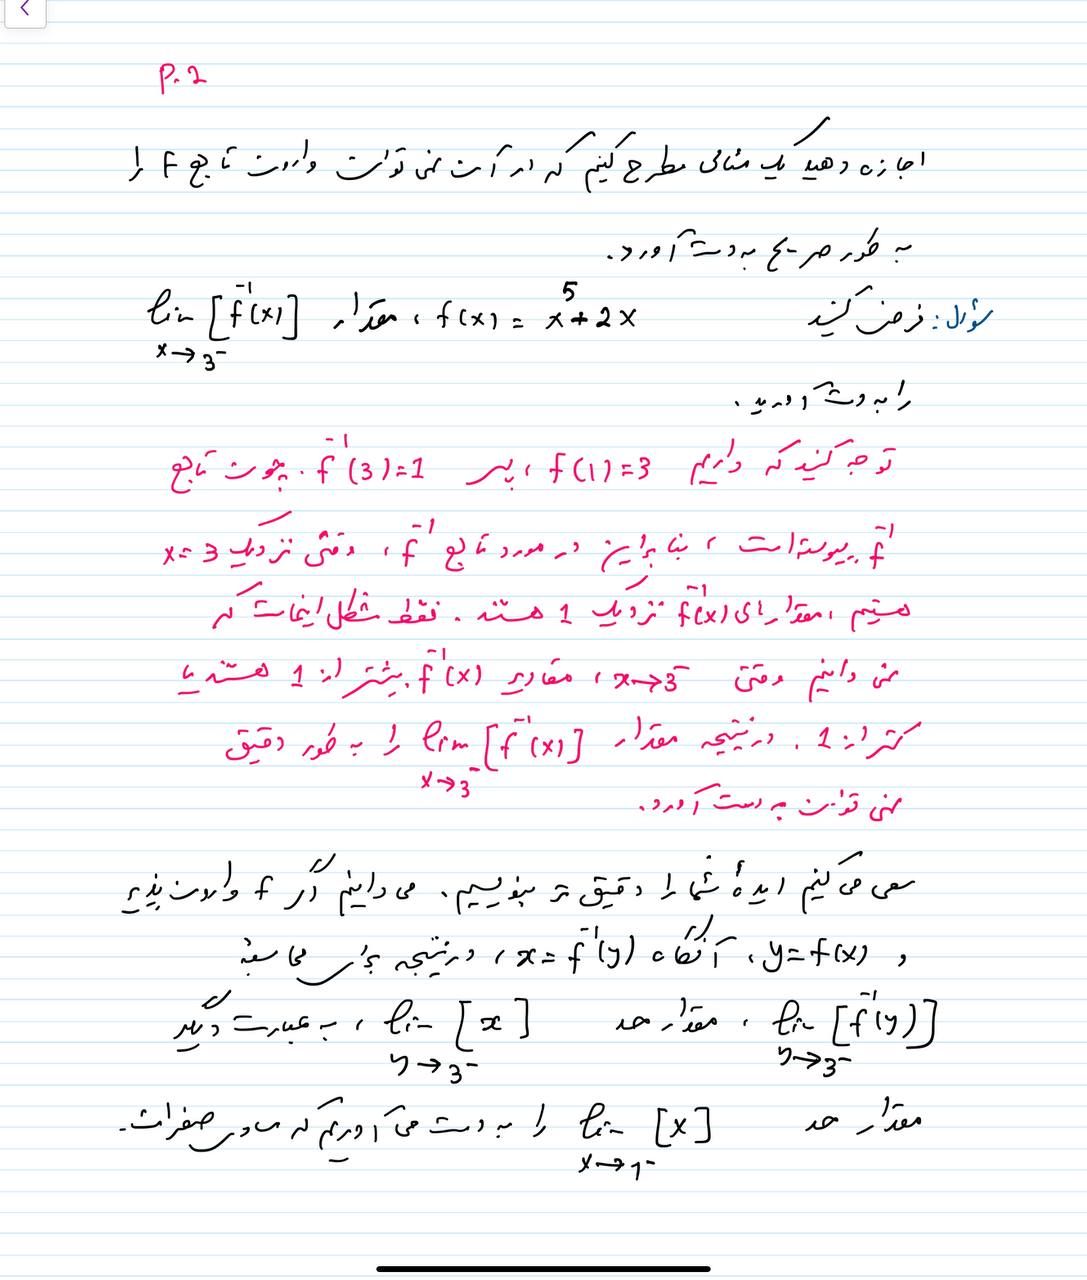 P.2
اجازه دهید یک مثالی مطرح کنیم که در آن نمی توان وارون تابع f را
به طور صریح به دست آورد.
سؤال: فرض کنید f(x) = x⁵+2x ، مقدار lim [f⁻¹(x)]
x→3⁻
را به دست آورید.
توجه کنید که داریم f(1)=3 ، پس f⁻¹(3)=1 . چون تابع
f⁻¹ پیوسته است ، بنابراین در مورد تابع f⁻¹ ، وقتی نزدیک x=3
هستیم ، مقدارهای f⁻¹(x) نزدیک 1 هستند . فقط مشکل اینجاست که
نمی دانیم وقتی x→3⁻ ، مقادیر f⁻¹(x) بیشتر از 1 هستند یا
کمتر از 1 . در نتیجه مقدار lim [f⁻¹(x)] را به طور دقیق
x→3⁻
نمی توان به دست آورد.
سعی می کنیم ایدهٔ شما را دقیق تر بنویسیم. می دانیم اگر f وارون پذیر
و y=f(x) ، آنگاه x=f⁻¹(y) ، در نتیجه برای محاسبهٔ
lim [f⁻¹(y)] ، مقدار حد lim [x] ، به عبارت دیگر
y→3⁻ y→3⁻
مقدار حد lim [x] را به دست می آوریم که مساوی صفر است.
x→1⁻